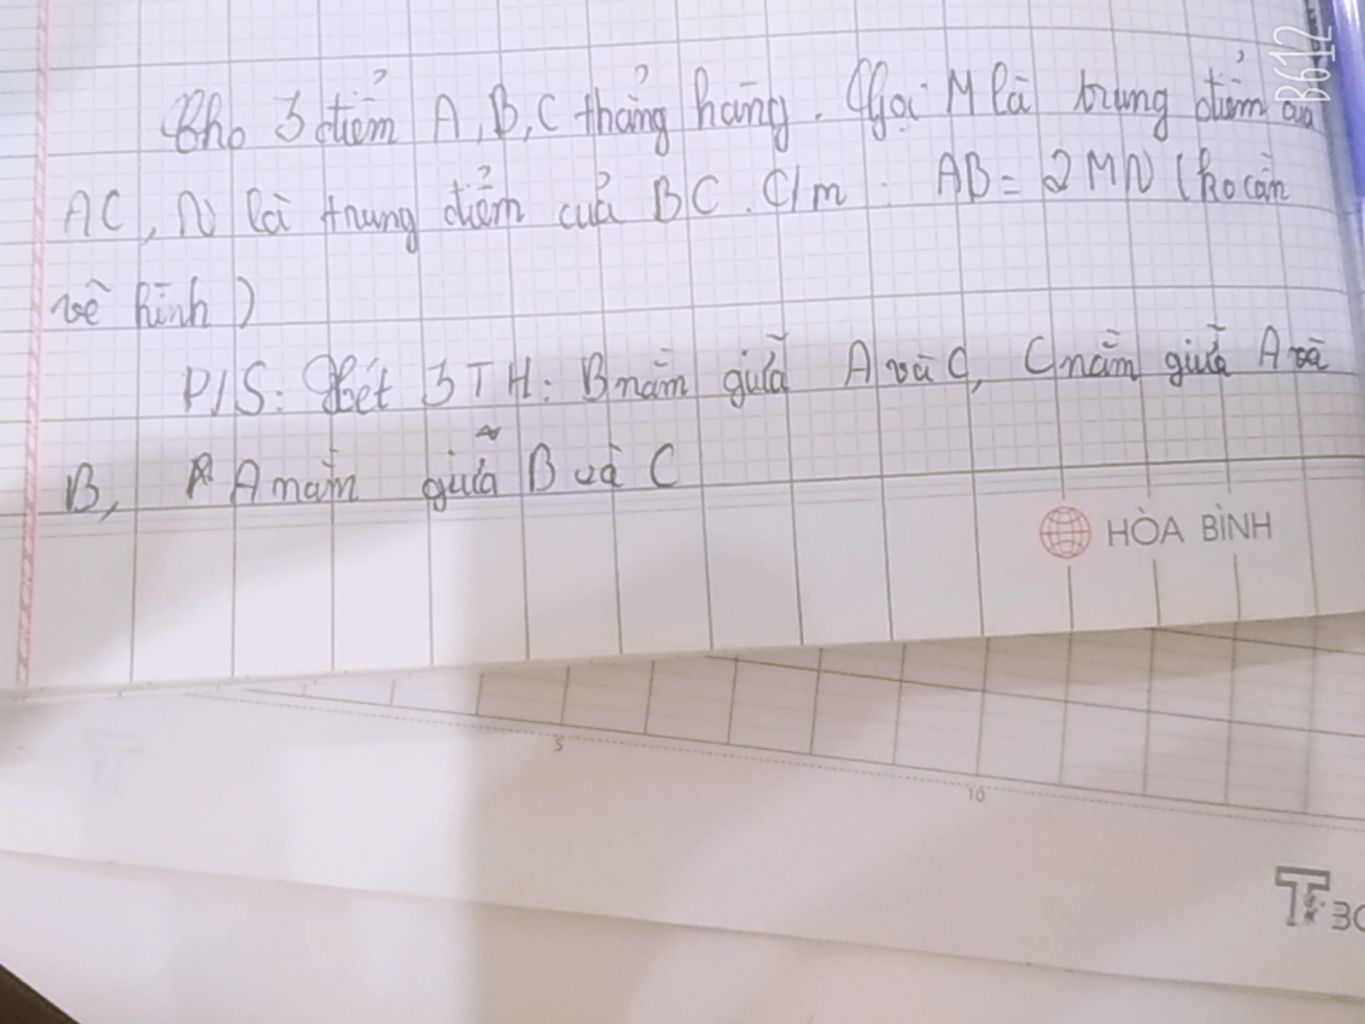 Cho 3 điểm A, B, C thẳng hàng. Gọi M là trung điểm của
AC, N là trung điểm của BC. C/m AB = 2MN (ko cần
vẽ hình)
P/S: Xét 3TH: B nằm giữa A và C, C nằm giữa A và
B, A nằm giữa B và C
HÒA BÌNH
5
10
B612